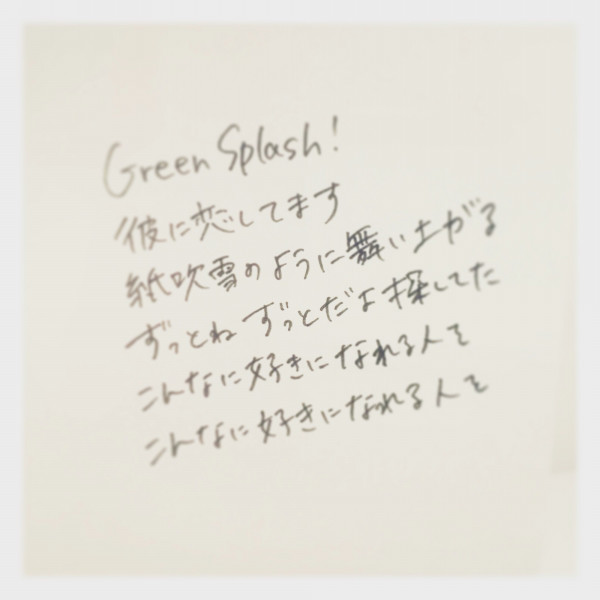 Green Splash!
彼に恋してます
紙吹雪のように舞い土がる
ずっとね ずっとだよ 探してた
こんなに好きになれる人を
こんなに好きになれる人を